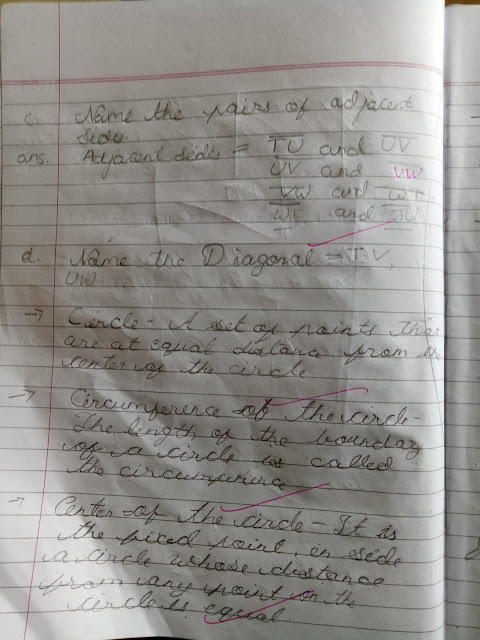 c. Name the pairs of adjacent
sides
ans. Adjacent sides = TU and UV
UV and VW
VW and WT
WT and TU
d. Name the Diagonal = TV,
UW
→ Circle - A set of points that
are at equal distance from the
center of the circle
→ Circumference of the circle -
The length of the bounday
of a circle is called
the circumference
→ Center of the circle - It is
the fixed point in side
a circle whose distance
from any point on the
circle is equal.